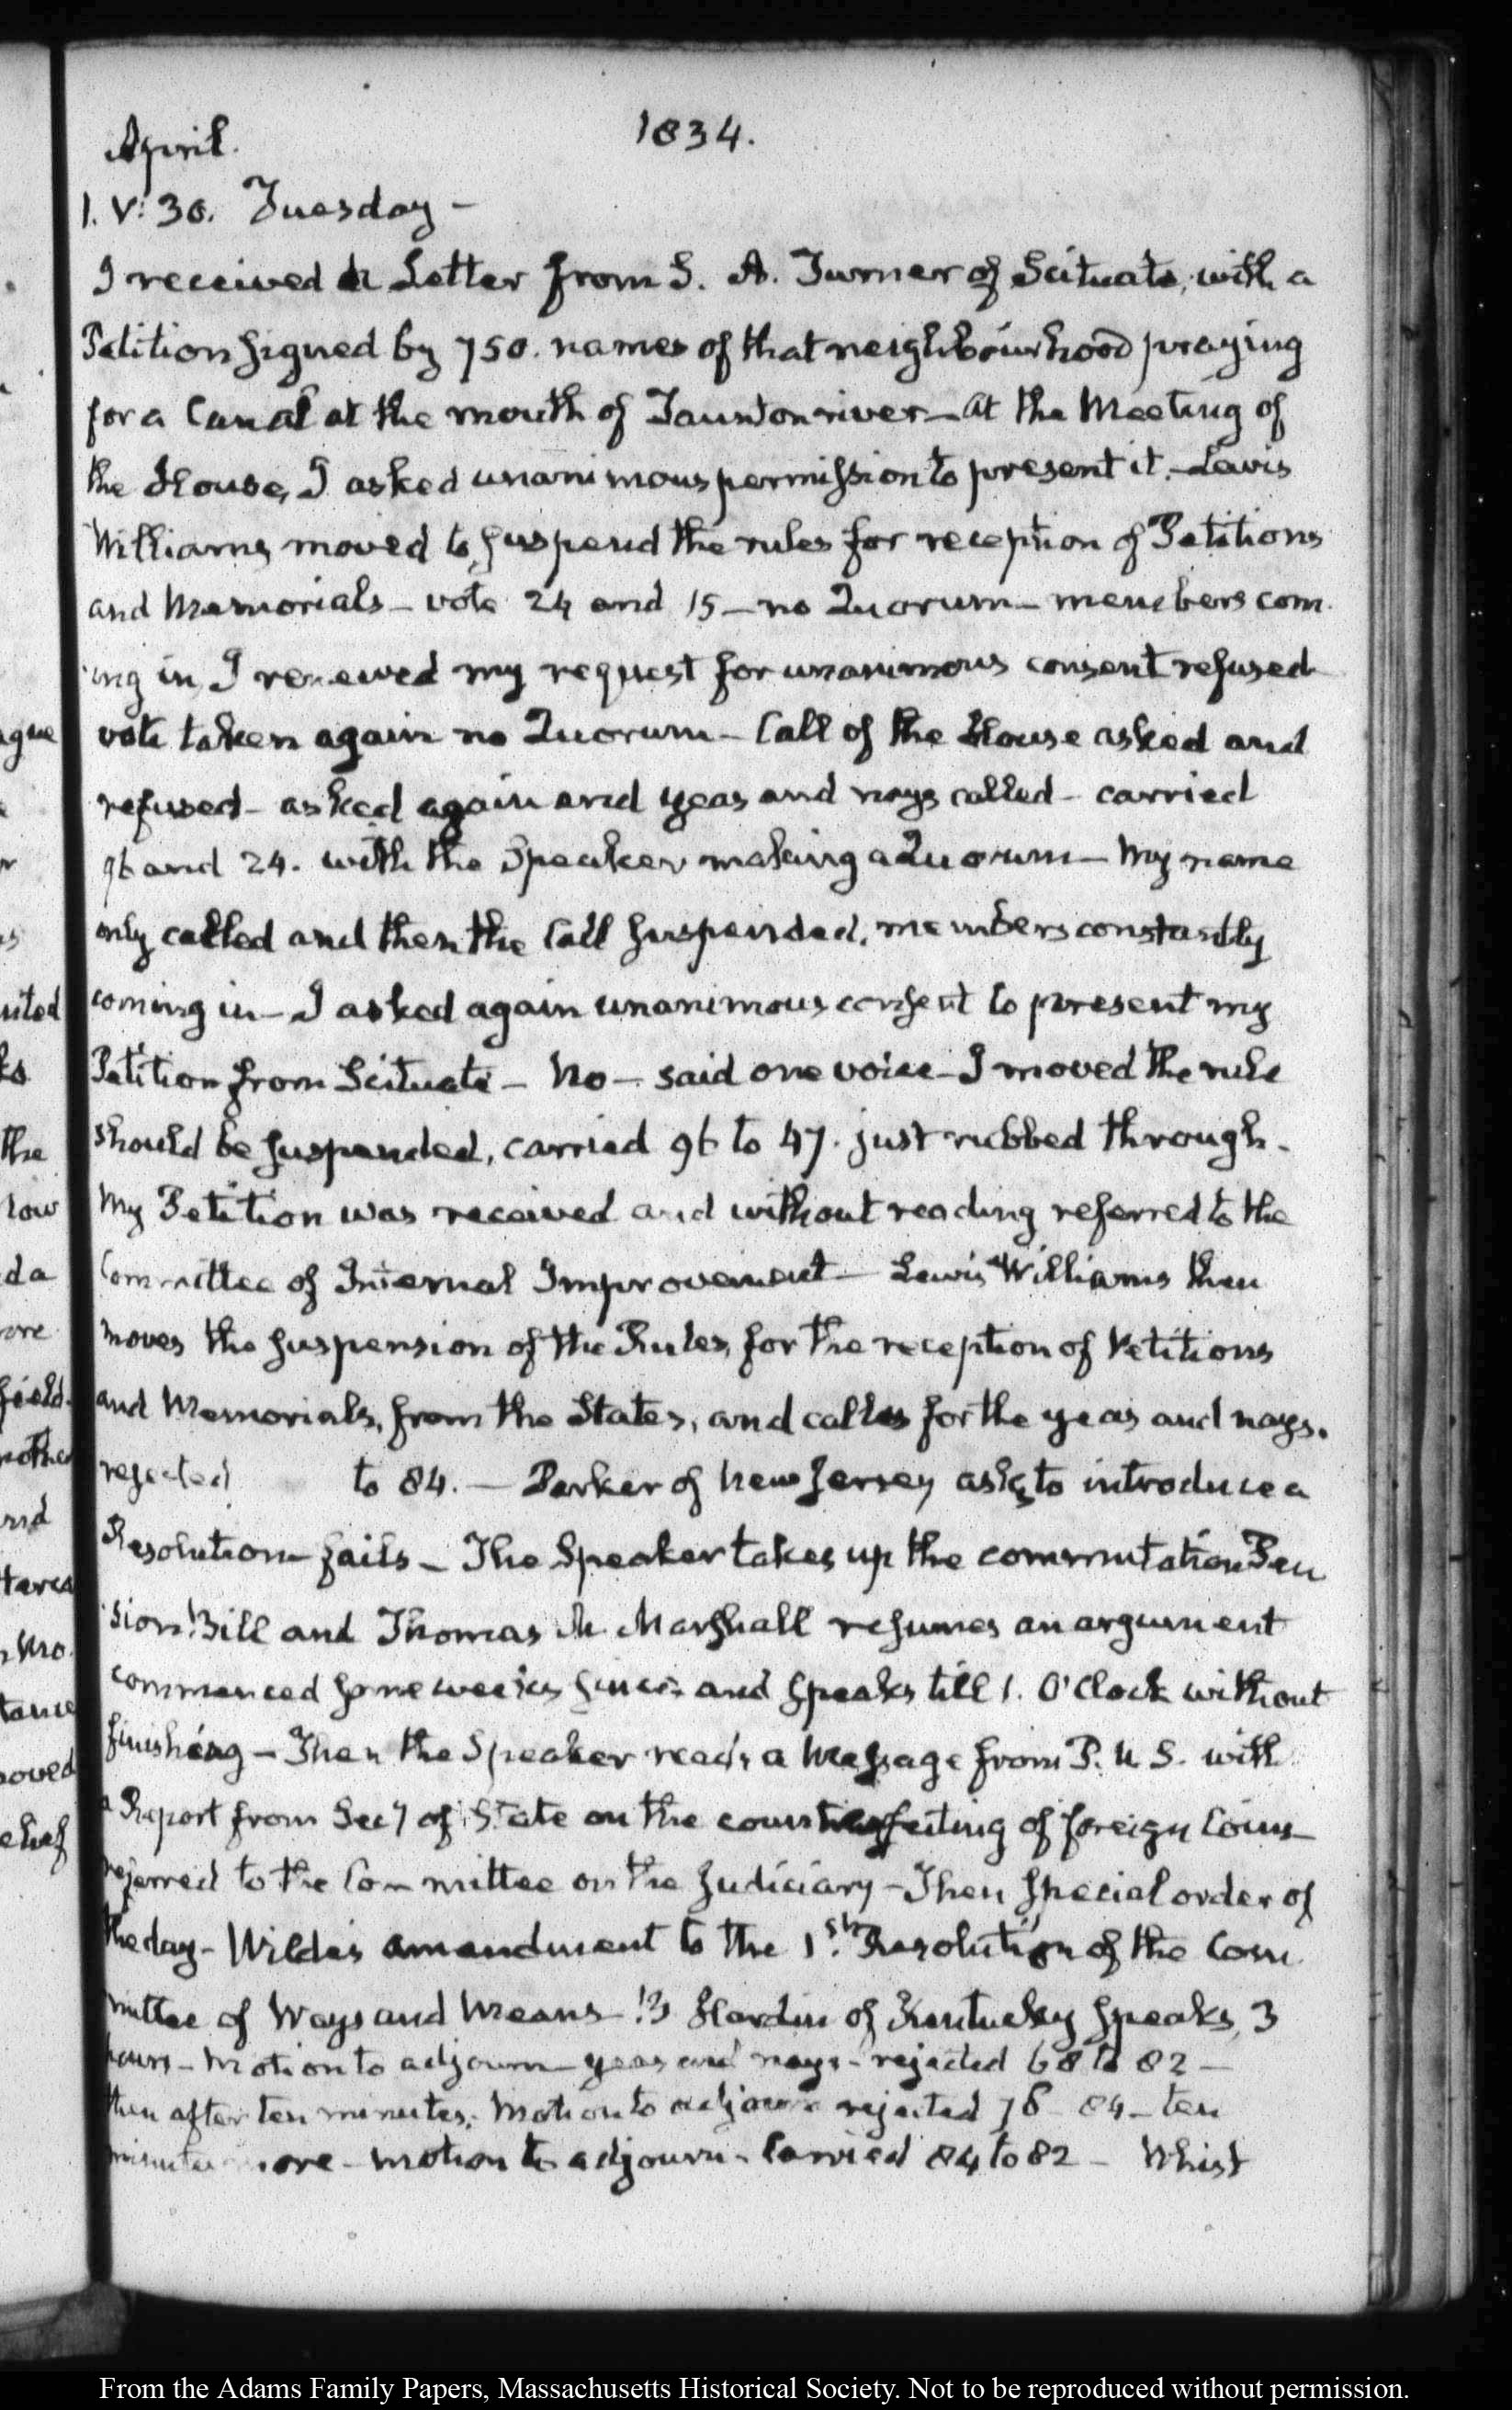 April.
1834.
1. V: 30. Tuesday –
I received a Letter from S. A. Turner of Scituate, with a
Petition signed by 750. names of that neighbourhood praying
for a Canal at the mouth of Taunton river – At the Meeting of
the House, I asked unanimous permission to present it. – Lewis
Williams moved to suspend the rules for reception of Petitions
and Memorials – vote 24 and 15 – no Quorum – members com-
ing in, I renewed my request for unanimous consent refused
vote taken again no Quorum – Call of the House asked and
refused – asked again and yeas and nays called – carried
96 and 24. with the Speaker making a Quorum – My name
only called and then the Call suspended, members constantly
coming in – I asked again unanimous consent to present my
Petition from Scituate – No – said one voice – I moved the rule
should be suspended, carried 96 to 47. just rubbed through.
My Petition was received and without reading referred to the
Committee of Internal Improvement – Lewis Williams then
moves the suspension of the Rules, for the reception of Petitions
and Memorials, from the States, and calls for the yeas and nays.
rejected to 84. – Parker of New Jersey asks to introduce a
Resolution – fails – The Speaker takes up the commutation Pen
sion Bill and Thomas A. Marshall resumes an argument
commenced some weeks since and speaks till 1. O'Clock without
finishing – Then the Speaker reads a Message from P. U S. with
a Report from Secy of State on the counterfeiting of foreign Coins –
referred to the Committee on the Judiciary – Then special order of
the day – Wilde's amendment to the 1st. Resolution of the Com
mittee of Ways and Means – B Hardin of Kentucky speaks, 3
hours – Motion to adjourn – yeas and nays – rejected 68 to 82 –
then after ten minutes, Motion to adjourn rejected 76 84 – ten
minutes more – motion to adjourn – Carried 84 to 82 – Whist
ague
uited
ks
the
low
da
ore
field-
nother
and
tance
oved
From the Adams Family Papers, Massachusetts Historical Society. Not to be reproduced without permission.